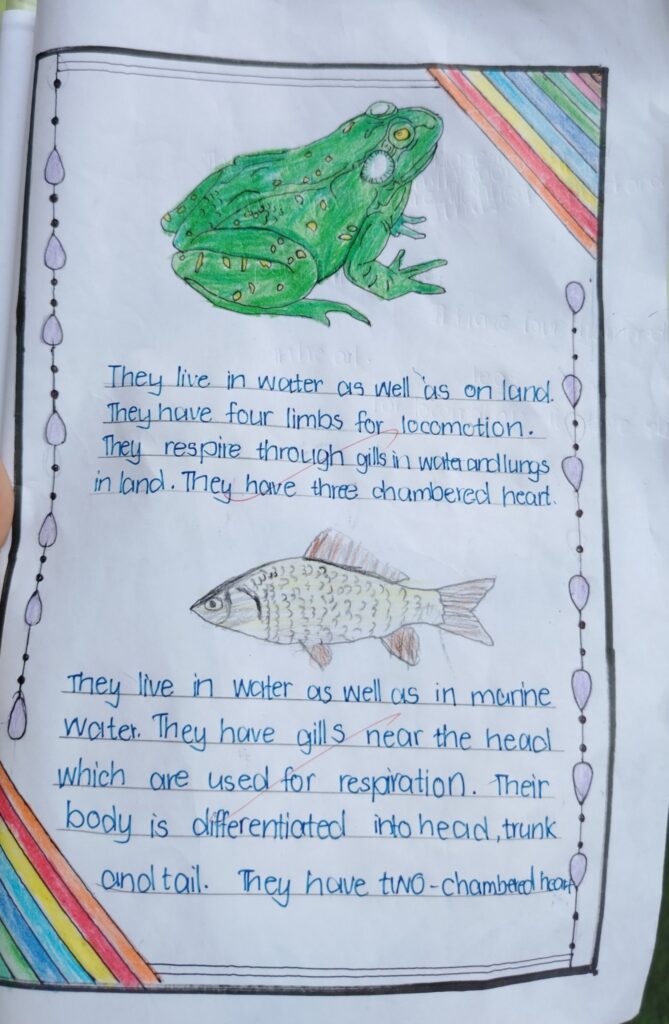 They live in water as well as on land.
They have four limbs for locomotion.
They respire through gills in water and lungs
in land. They have three chambered heart.
They live in water as well as in marine
water. They have gills near the head
which are used for respiration. Their
body is differentiated into head, trunk
and tail. They have two-chambered heart